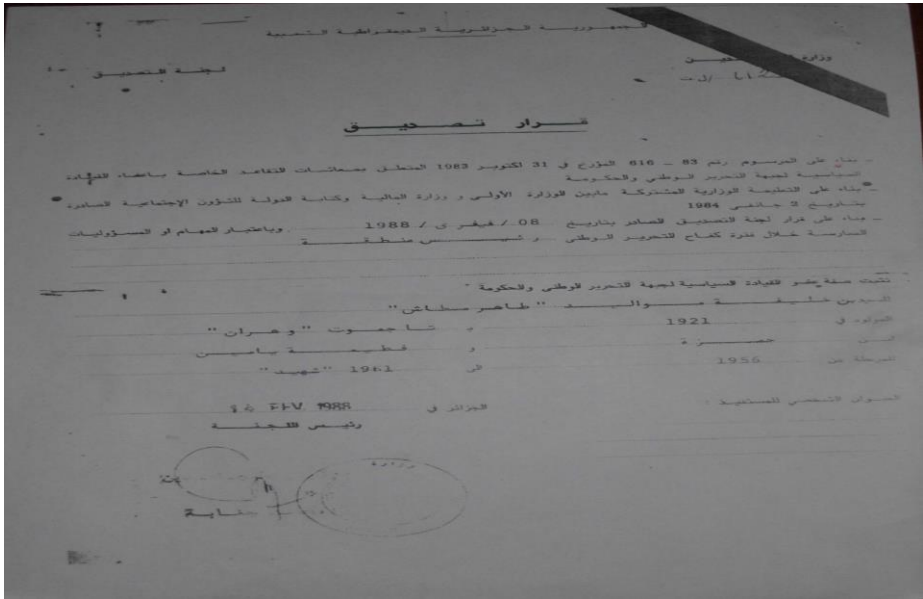 الجمهورية الجزائرية الديمقراطية الشعبية
وزارة
لجنة التصديق
قرار تصديق
_ بناء على المرسوم رقم 83 _ 616 المؤرخ في 31 اكتوبر 1983 المتعلق بمعاشات التقاعد الخاصة باعضاء القيادة
السياسية لجبهة التحرير الوطني والحكومة
_ بناء على التعليمة الوزارية المشتركة مابين الوزارة الأولى و وزارة المالية وكتابة الدولة للشؤون الإجتماعية الصادرة
بتاريخ 2 جانفي 1984
_ وبناء على قرار لجنة التصديق الصادر بتاريخ 08 / فيفري / 1988 وباعتبار المهام او المسؤوليات
الممارسة خلال فترة كفاح التحرير الوطني رئيس منطقة
تثبت صفة عضو القيادة السياسية لجبهة التحرير الوطني والحكومة
السيد بن خليفة مواليد "طاهر مطاش"
المولود في 1921 بـ تاجموت "وهران"
ابن حمزة و فطيمة ياسين
للمرحلة من 1956 الى 1961 "شهيد"
العنوان الشخصي للمستفيد :
الجزائر في 14 FEV 1988
رئيس اللجنة
وزارة